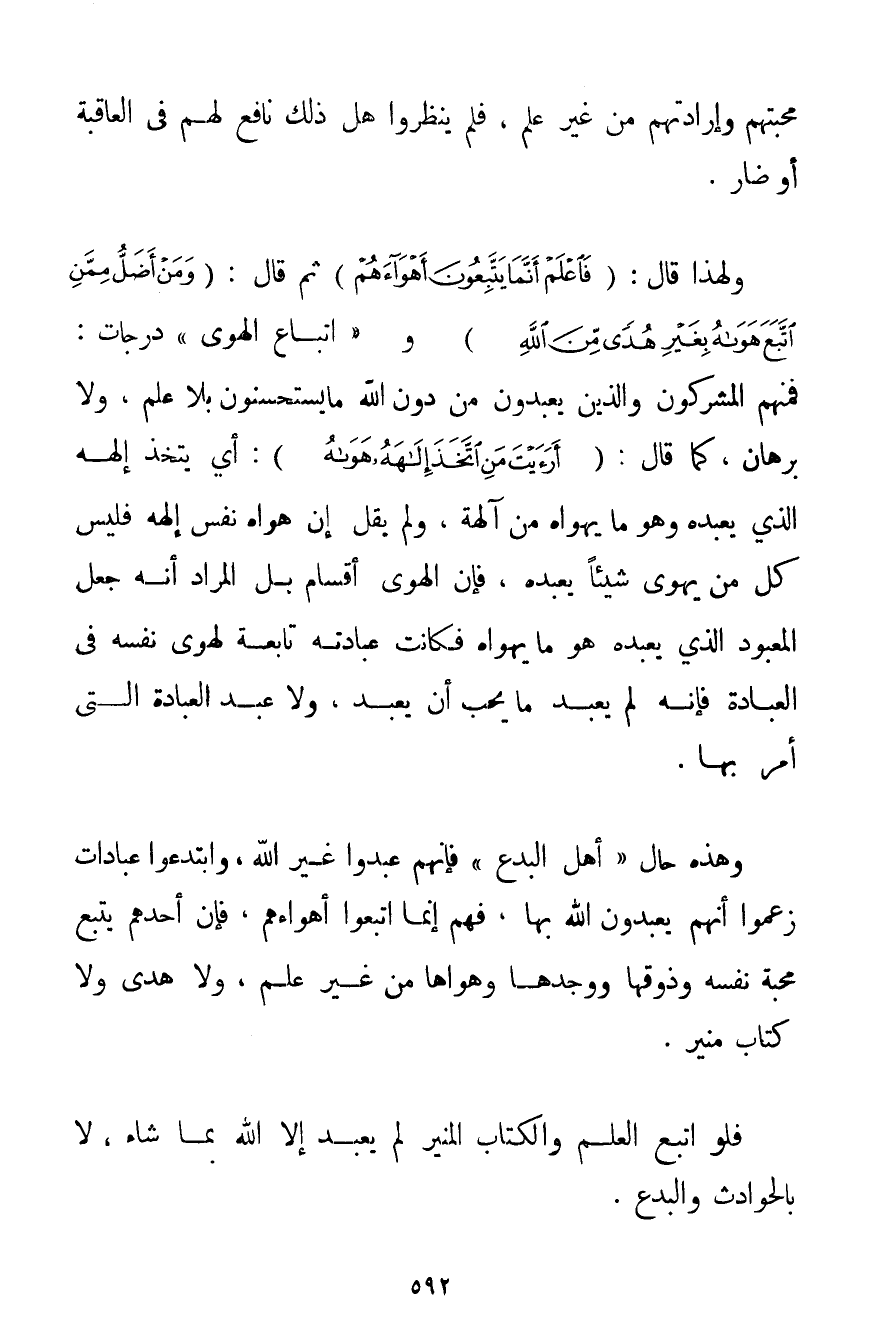 محبتهم وإرادتهم من غير علم ، فلم ينظروا هل ذلك نافع لهم فى العاقبة
أو ضار .
ولهذا قال : ( فَٱعْلَمْ أَنَّمَا يَتَّبِعُونَ أَهْوَآءَهُمْ ) ثم قال : ( وَمَنْ أَضَلُّ مِمَّنِ
ٱتَّبَعَ هَوَىٰهُ بِغَيْرِ هُدًى مِّنَ ٱللَّهِ ) و « اتباع الهوى » درجات :
فمنهم المشركون والذين يعبدون من دون الله مايستحسنون بلا علم ، ولا
برهان ، كما قال : ( أَرَءَيْتَ مَنِ ٱتَّخَذَ إِلَٰهَهُۥ هَوَىٰهُ ) : أي يتخذ إلهه
الذي يعبده وهو ما يهواه من آلهة ، ولم يقل إن هواه نفس إلهه فليس
كل من يهوى شيئاً يعبده ، فإن الهوى أقسام بل المراد أنه جعل
المعبود الذي يعبده هو ما يهواه فكانت عبادته تابعة لهوى نفسه فى
العبادة فإنه لم يعبد ما يحب أن يعبد ، ولا عبد العبادة التى
أمر بها .
وهذه حال « أهل البدع » فإنهم عبدوا غير الله ، وابتدعوا عبادات
زعموا أنهم يعبدون الله بها ، فهم إنما اتبعوا أهواءهم ، فإن أحدهم يتبع
محبة نفسه وذوقها ووجدها وهواها من غير علم ، ولا هدى ولا
كتاب منير .
فلو اتبع العلم والكتاب المنير لم يعبد إلا الله بما شاء ، لا
بالحوادث والبدع .
٥٩٢